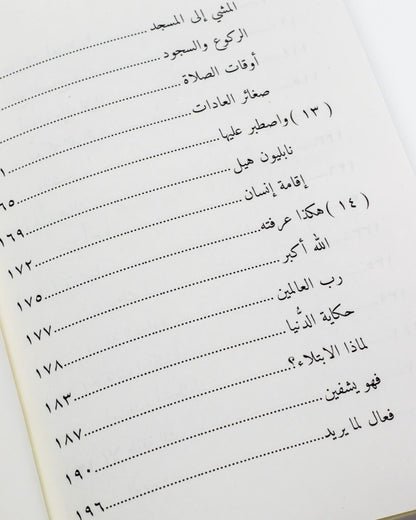 المشي إلى المسجد
الركوع والسجود
أوقات الصلاة
صغائر العادات ١
(١٣) واصطبر عليها ٦٥
نابليون هيل ١٦٩
إقامة إنسان ١٧٢
(١٤) هكذا عرفته ١٧٥
الله أكبر ١٧٧
رب العالمين ١٧٨
حكاية الدُّنيا ١٨٣
لماذا الابتلاء؟ ١٨٧
فهو يشفين ١٩٠
فعال لما يريد ١٩٦